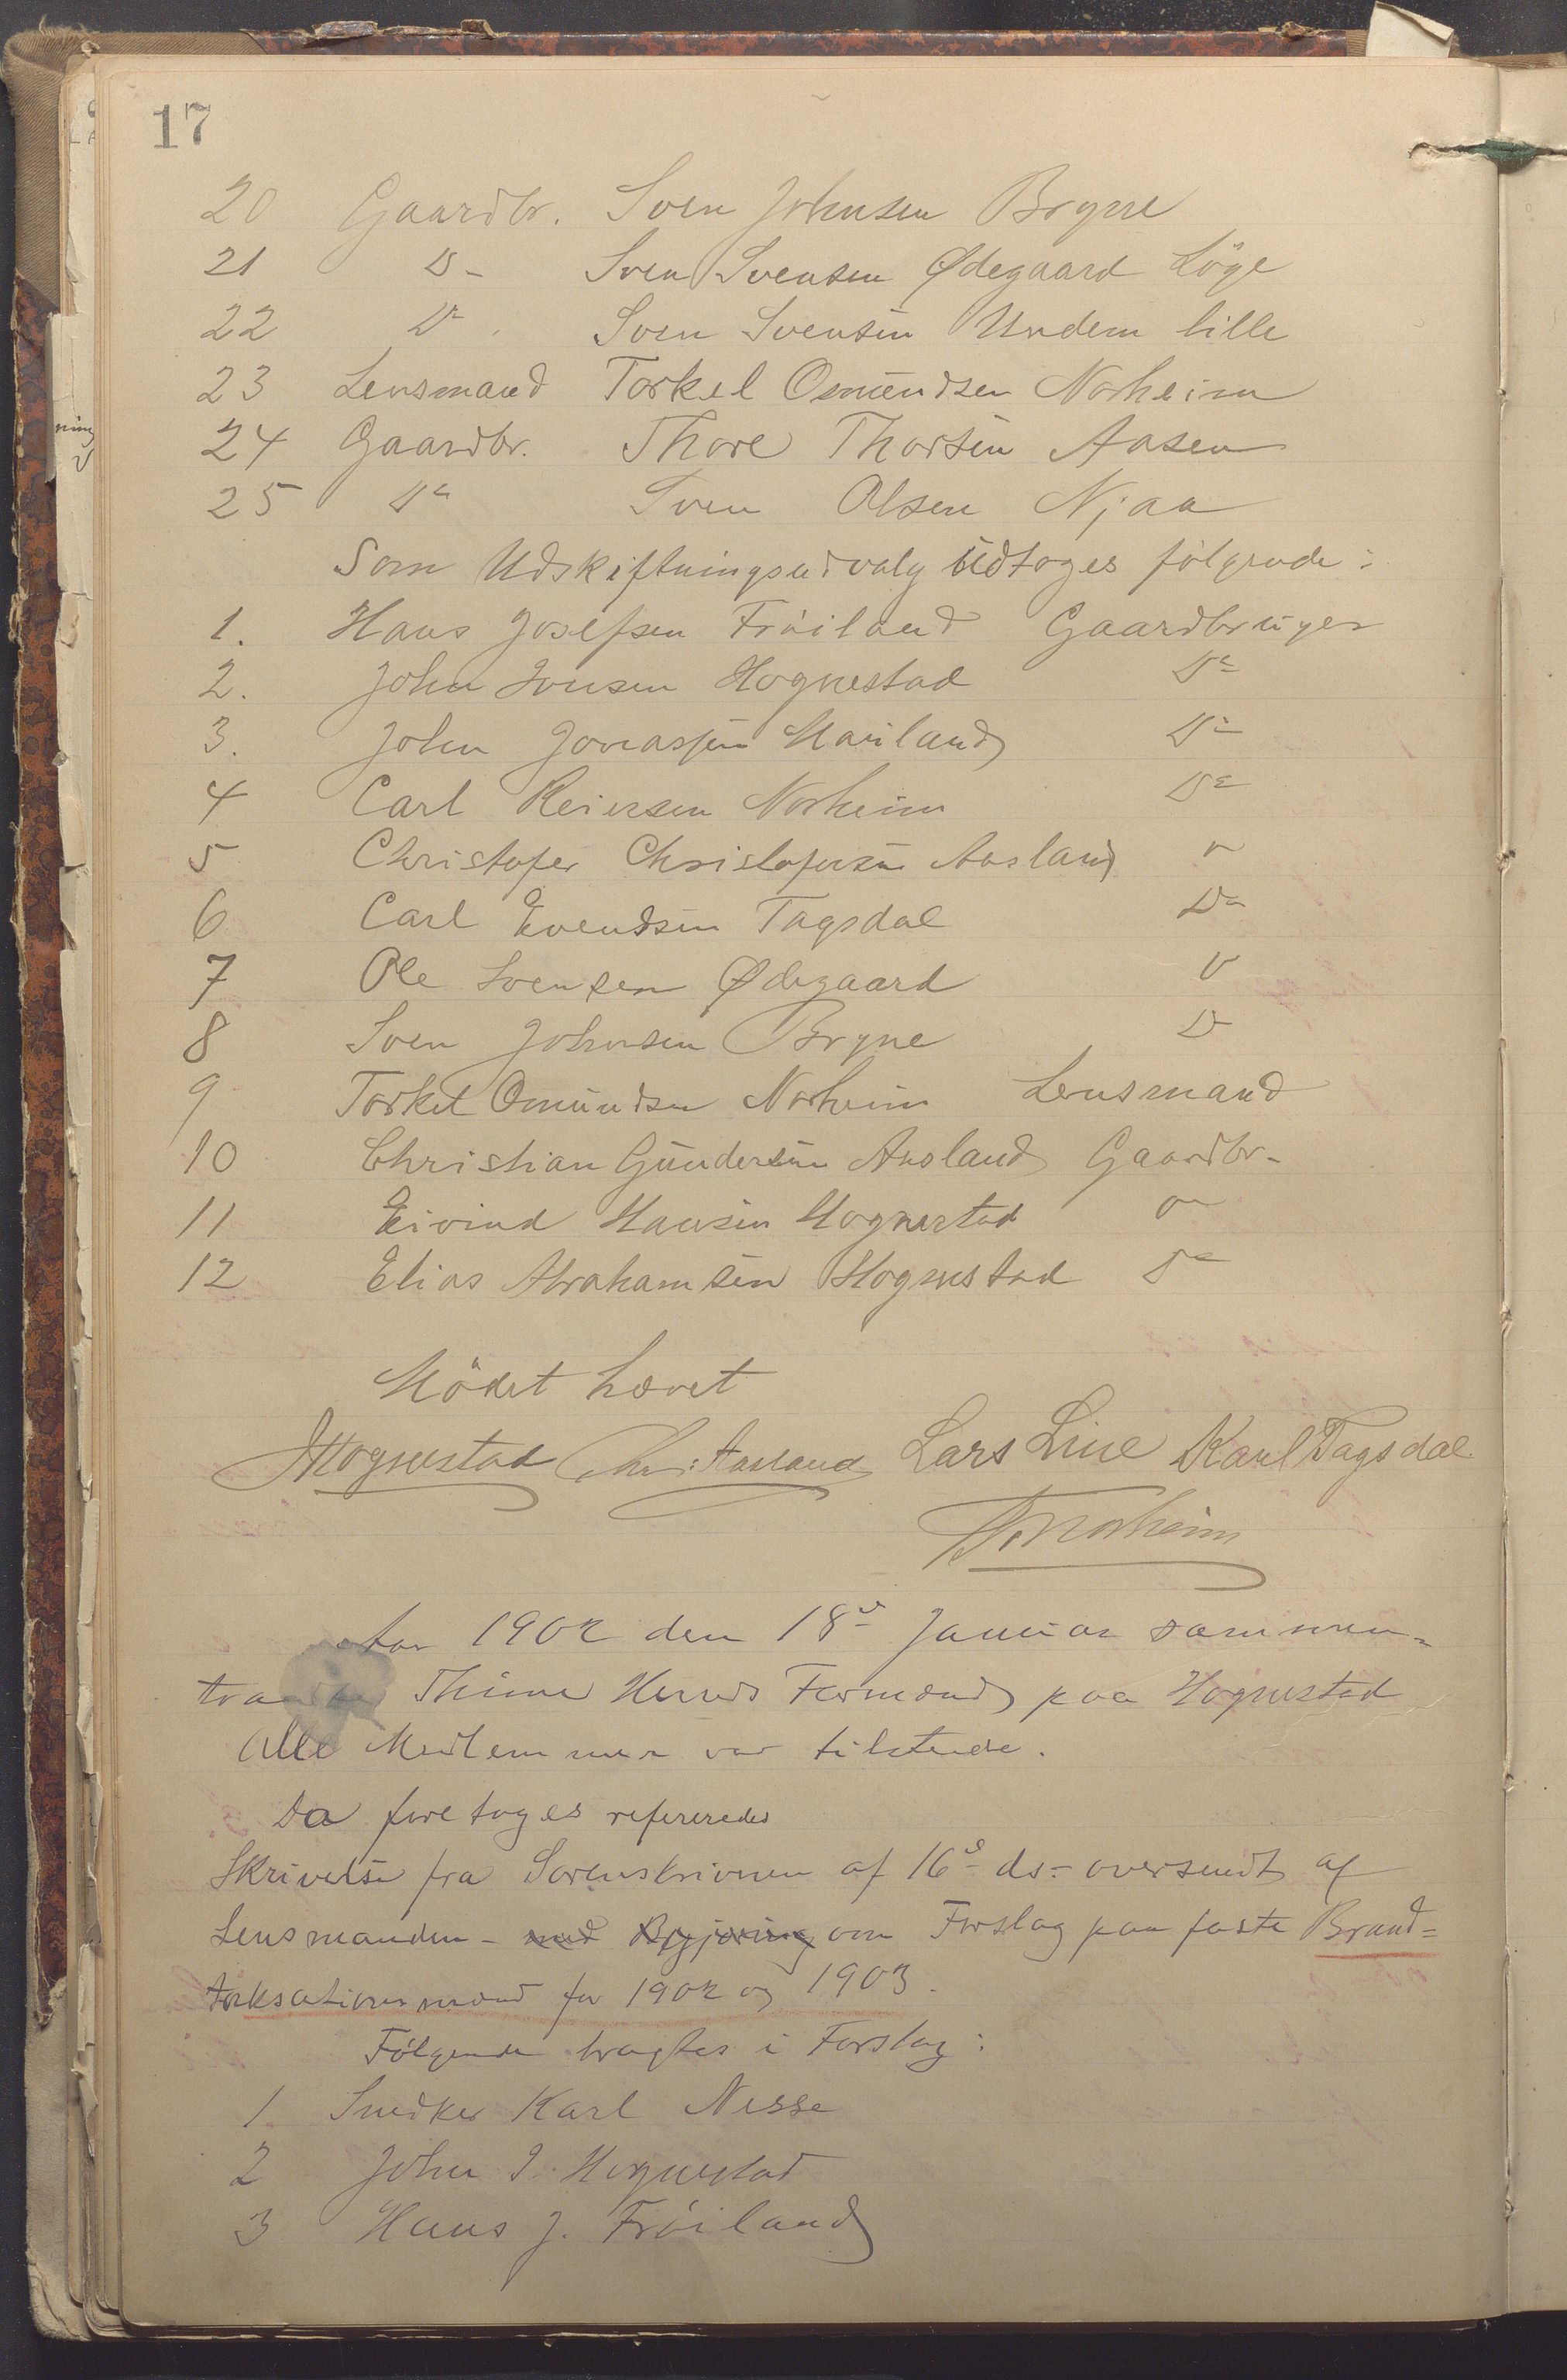 17
20 Gaardbr. Sven Johnsen Bryne
21 Do Sven Svensen Ødegaard Löge
22 Do Sven Svensen Undem lille
23 Lensmand Torkel Osmundsen Norheim
24 Gaardbr. Thore Thorsen Aasen
25 Do Sven Olsen Njaa
Som Udskiftningsudvalg udtoges fölgende:
1. Hans Josefsen Fröiland Gaardbruger
2. John Ivusen Hognestad Do
3. John Jonassen Hauland Do
4 Carl Reiersen Norheim Do
5 Christofer Christofersen Aasland
6 Carl Evendsen Tagsdal Do
7 Ole Svensen Ødegaard
8 Sven Johnsen Bryne D
9 Torkel Omundsen Norheim Lensmand
10 Christian Gundersen Aasland Gaardbr-
11 Eivind Hansen Hognestad
12 Elias Abrahamsen Hognestad Do
Mödet hævet
Hognestad Chr. Aasland Lars Line Karl Tagsdal
T. Norheim
Aar 1902 den 18de Januar sammen-
Thime Herreds Formænd paa Hognestad
Alle Medlemmer var tilstede.
Da foretoges refereredes
Skrivelse fra Sorenskriveren af 16de ds- oversendt af
Lensmanden - med Begjæring om Forslag paa faste Brand-
taksationsmænd for 1902 og 1903.
Fölgende bragtes i Forslag:
1 Snedker Karl Nesse
2 John I. Hognestad
3 Hans J. Fröiland